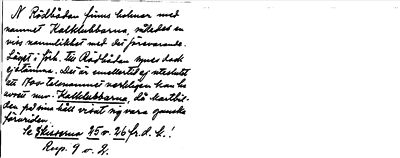 N Rödbådan finns holmar med
namnet Kalklubbarna, således en
viss namnlikhet med det förevarande.
Läget i förh. till Rödbådan synes dock
ej stämma. Det är emellertid ej uteslutet
att 1700-talsnamnet verkligen kan ha
avsett nuv. Kalklubbarna, då kartbil-
den på sina håll visat sig vara ganska
förvriden.
Se Skisserna 25 o. 26 fr. d. k.!
Rup. 9 o. 2.